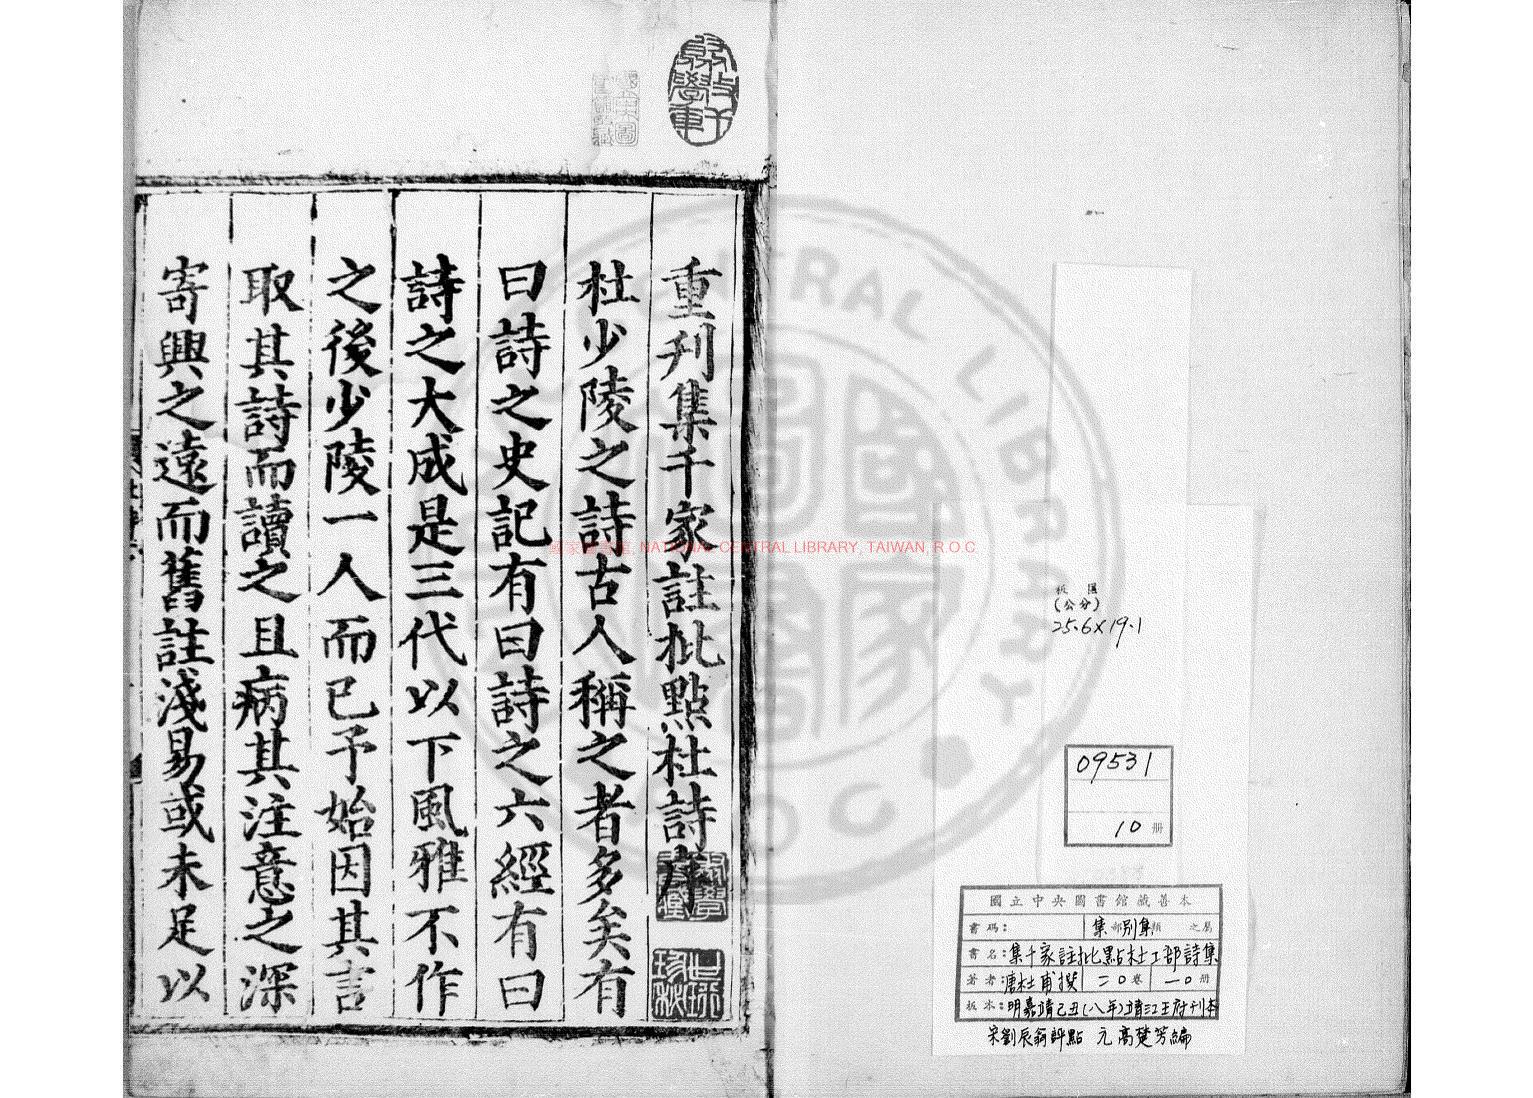 重刋集千家註批點杜詩序
杜少陵之詩古人稱之者多矣有
曰詩之史記有曰詩之六經有曰
詩之大成是三代以下風雅不作
之後少陵一人而已予始因其言
取其詩而讀之且病其注意之深
寄興之遠而舊註淺易或未足以
國家圖書館, NATIONAL CENTRAL LIBRARY, TAIWAN, R.O.C
CENTRAL LIBRARY
R.O.C
板匡
(公分)
25.6×19.1
09531
10 册
國立中央圖書館藏善本
書碼: 集部別集類 之屬
書名: 集千家註批點杜工部詩集
著者: 唐杜甫撰 二〇卷 一〇册
板本: 明嘉靖己丑(八年)靖江王府刊本
宋劉辰翁評點 元高楚芳編